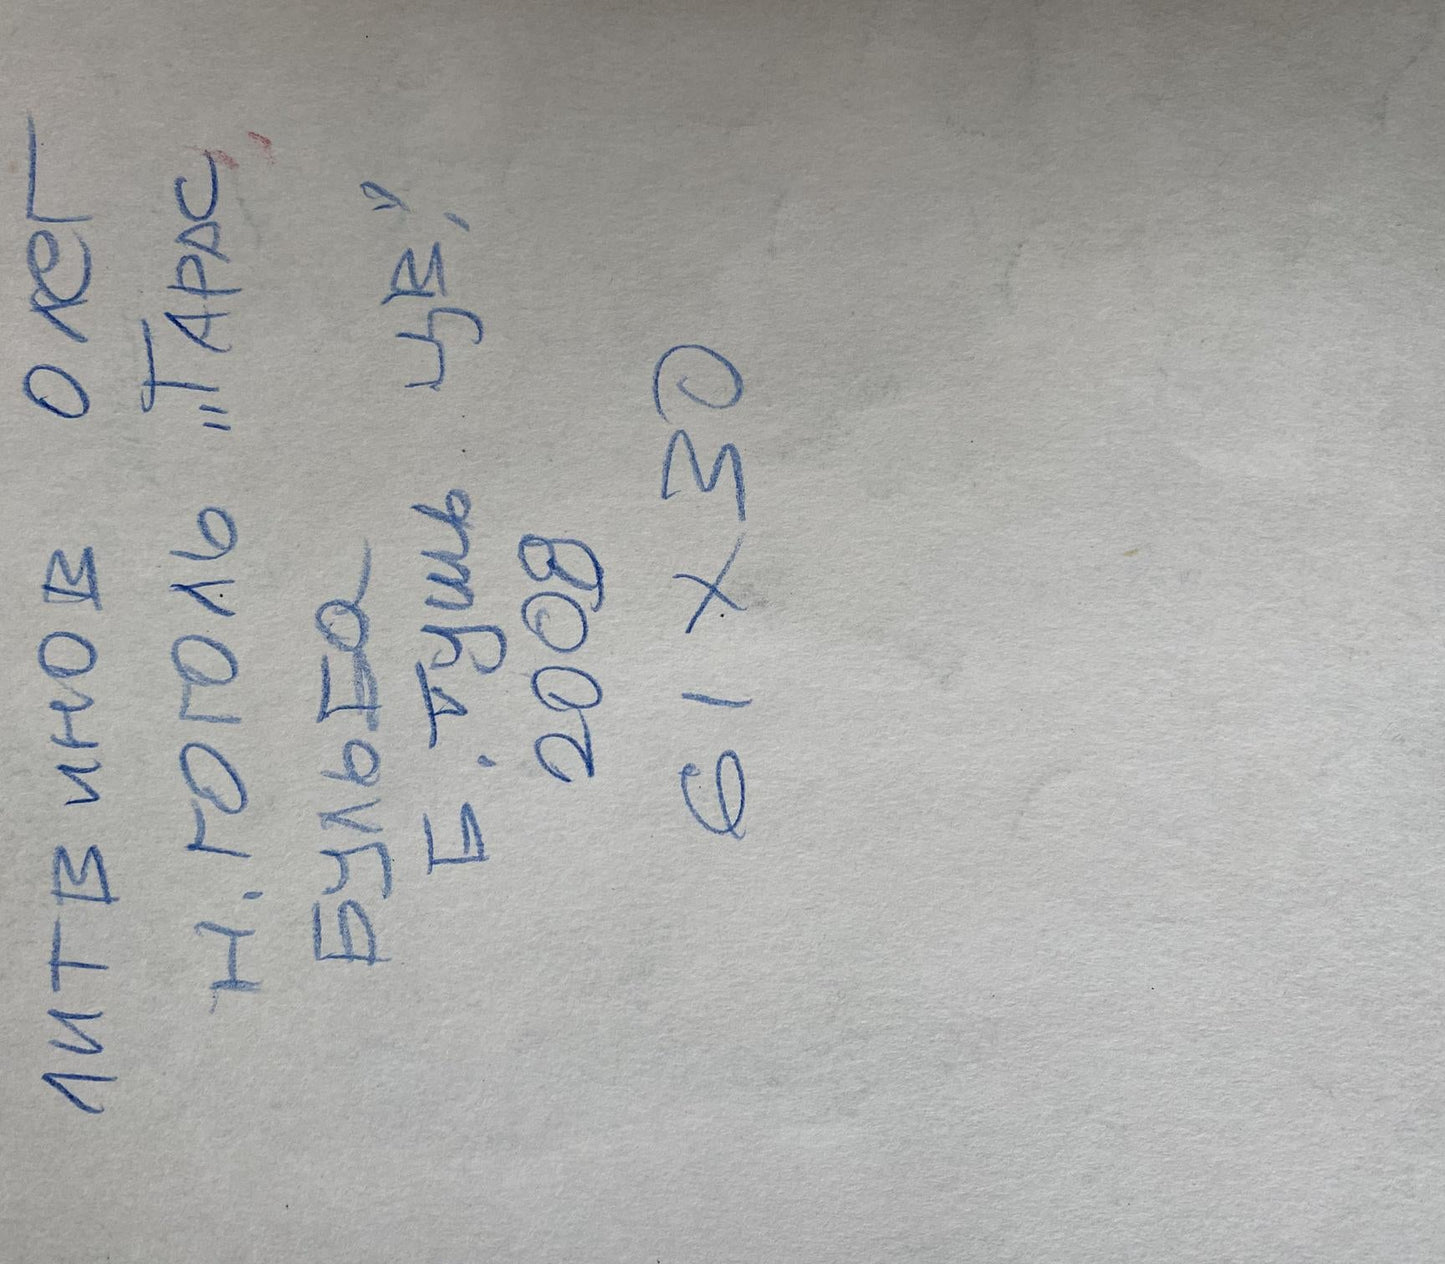 ЛИТВИНОВ ОЛЕГ
Н. ГОГОЛЬ „ТАРАС
БУЛЬБА"
Б. тушь цв.,
2008
61 х 30